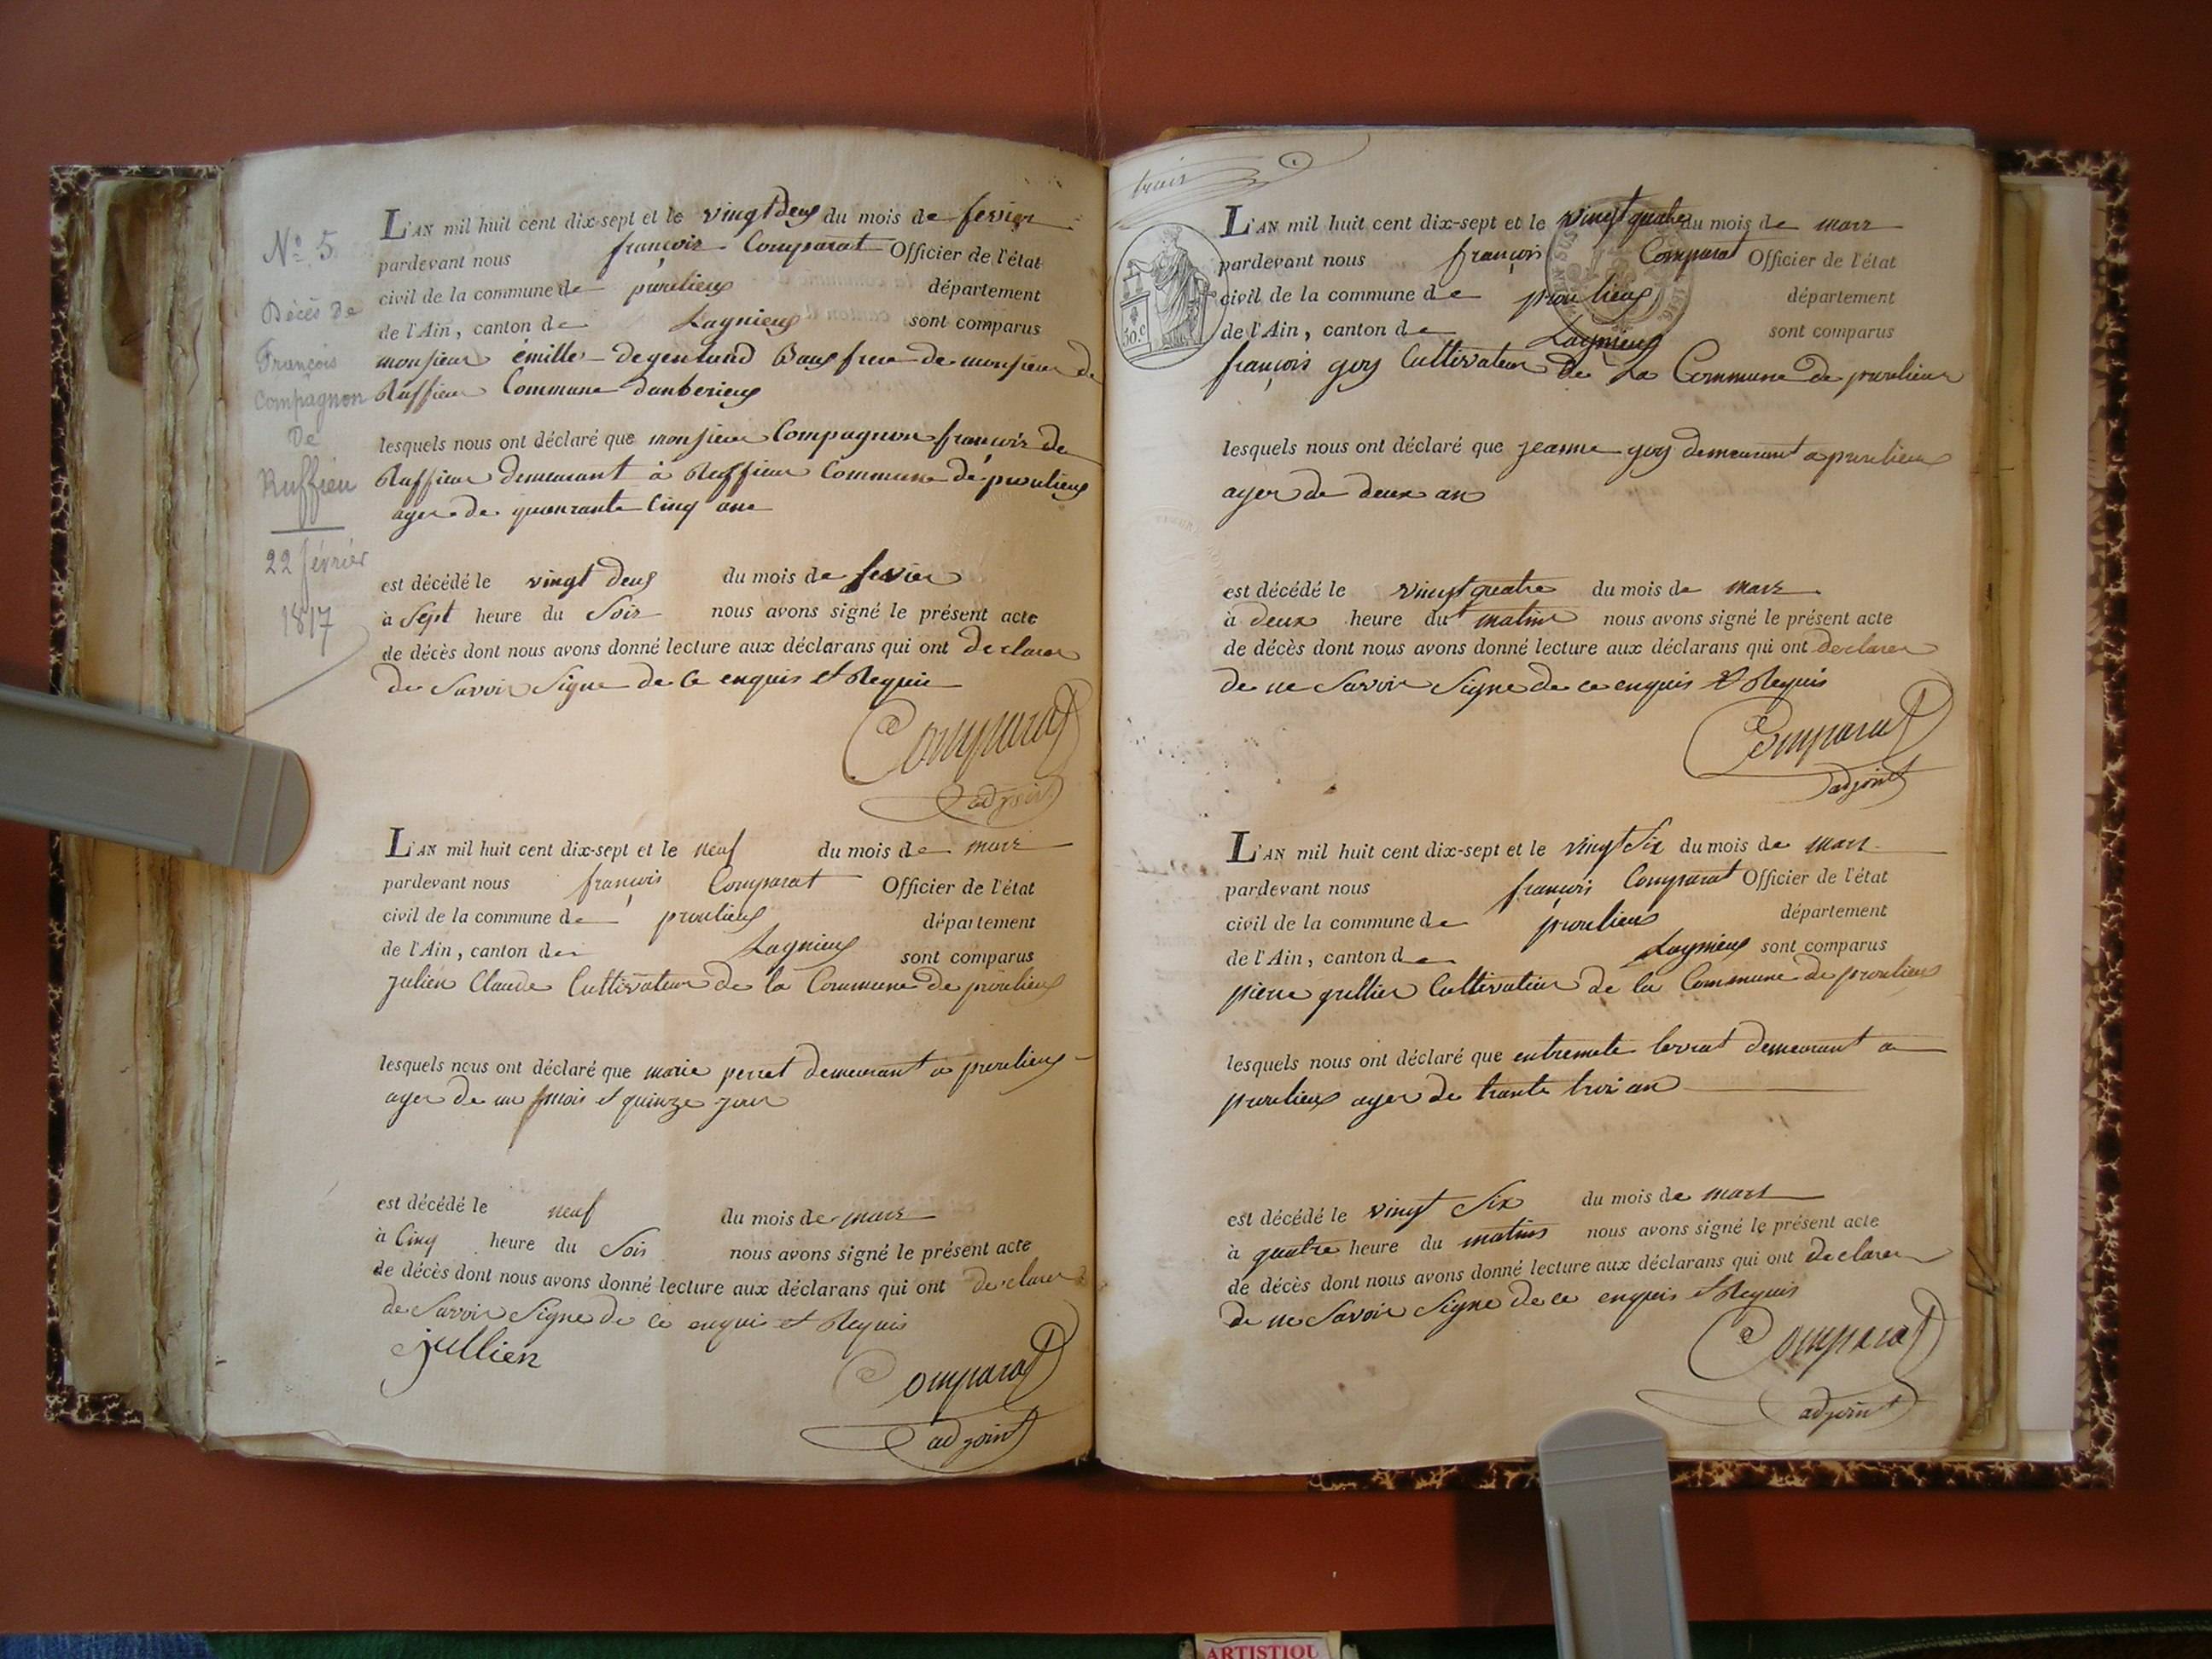 N° 5
Décès de
François
Compagnon
De
Ruffieu
22 février
1817
L'AN mil huit cent dix-sept et le vingt deux du mois de fevrier
pardevant nous françois Comparat Officier de l'état
civil de la commune de proulieux département
de l'Ain, canton de Lagnieux sont comparus
monsieur émille degentand Baux frere de monsieur de
Ruffieu Commune danberieux
lesquels nous ont déclaré que monsieur Compagnon françois de
Ruffieu demeurant à Ruffieu Commune de proulieux
ager de quanrante Cinq ans
est décédé le vingt deux du mois de fevier
à Sept heure du Soir nous avons signé le présent acte
de décès dont nous avons donné lecture aux déclarans qui ont declarer
de Savoir Signe de ce enquis et Requis
Comparat
adjoint
L'AN mil huit cent dix-sept et le neuf du mois de mars
pardevant nous françois Comparat Officier de l'état
civil de la commune de proulieux département
de l'Ain, canton de Lagnieux sont comparus
julien Claude Cultivateur de la Commune de proulieux
lesquels nous ont déclaré que marie perret demeurant a proulieux
ager de un mois et quinze jour
est décédé le neuf du mois de mars
à Cinq heure du Soir nous avons signé le présent acte
de décès dont nous avons donné lecture aux déclarans qui ont declarer
de Savoir Signe de ce enquis et Requis
jullien
Comparat
adjoint
trois
50.c
L'AN mil huit cent dix-sept et le vingt quatre du mois de mars
pardevant nous françois Comparat Officier de l'état
civil de la commune de proulieux département
de l'Ain, canton de Lagnieux sont comparus
françois goy Cultivateur de La Commune de proulieux
lesquels nous ont déclaré que jeanne goy demeurant a proulieux
ager de deux an
est décédé le vingt quatre du mois de mars
à deux heure du matin nous avons signé le présent acte
de décès dont nous avons donné lecture aux déclarans qui ont declarer
de ne Savoir Signe de ce enquis et Requis
Comparat
adjoint
L'AN mil huit cent dix-sept et le vingt Six du mois de mars
pardevant nous françois Comparat Officier de l'état
civil de la commune de proulieux département
de l'Ain, canton de Lagnieux sont comparus
pierre grillier Cultivateur de la Commune de proulieux
lesquels nous ont déclaré que entremete levrat demeurant a
proulieux ager de trante trois an
est décédé le vingt Six du mois de mars
à quatre heure du matins nous avons signé le présent acte
de décès dont nous avons donné lecture aux déclarans qui ont declarer
de ne Savoir Signe de ce enquis et Requis
Comparat
adjoint
ARTISTIQU